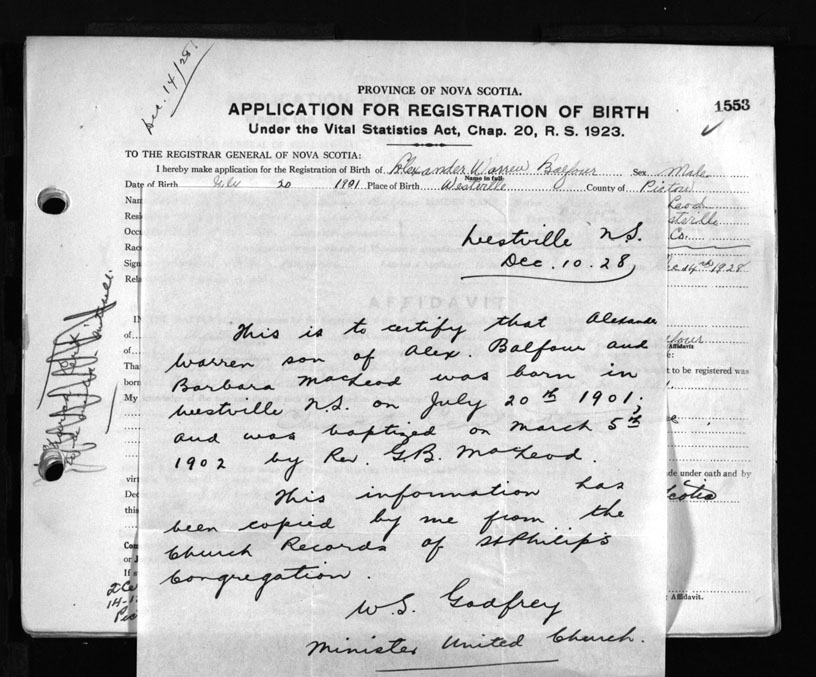 Dec. 14/28.
PROVINCE OF NOVA SCOTIA.
APPLICATION FOR REGISTRATION OF BIRTH
1553
Under the Vital Statistics Act, Chap. 20, R. S. 1923.
TO THE REGISTRAR GENERAL OF NOVA SCOTIA:
I hereby make application for the Registration of Birth of Alexander Warren Balfour Sex Male
Name in full
Date of Birth July 20 1901 Place of Birth Westville County of Pictou
Nam
Resi
Occ
Race
Sign
Rela
Leod
Co.
1928
AFFIDAVIT
IN
of
of
Affidavit
Tha
t to be registered was
born
My
Westville N.S.
Dec. 10. 28,
This is to certify that Alexander
Warren son of Alex. Balfour and
Barbara MacLeod was born in
Westville N.S. on July 20th 1901.
and was baptized on March 5th,
1902 by Rev. G.B. MacLeod.
This information has
been copied by me from the
Church Records of St Philip's
Congregation.
W. S. Godfrey
Minister United Church.
virt
de under oath and by
Dec
cotia
this
Com
or J
If s
14-1
Affidavit.